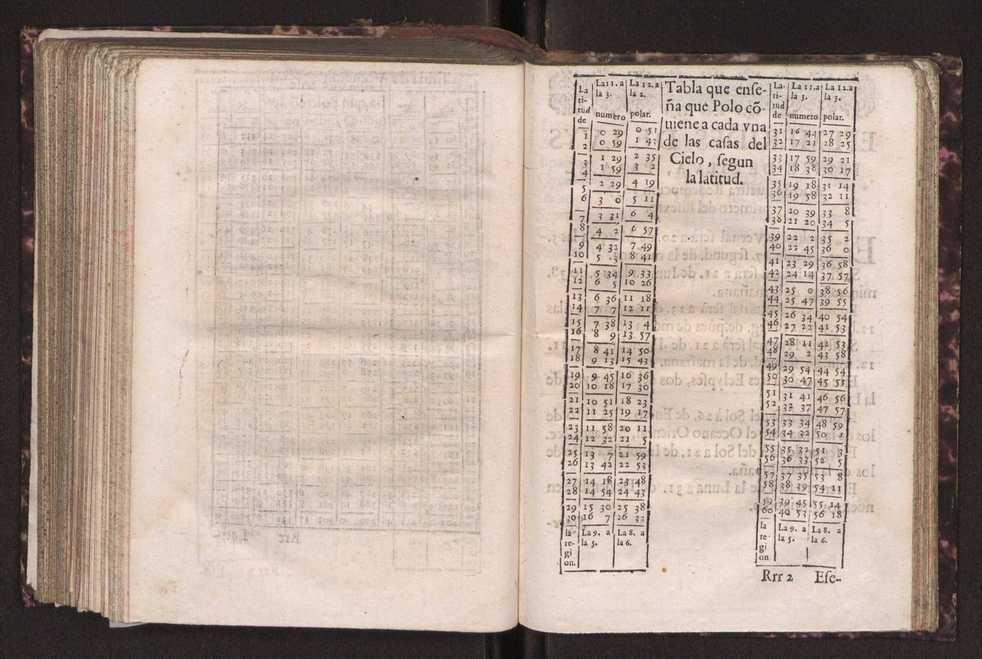 La- La 11. a La 12. a
ti- la 3. la 2.
tud
de numero polar.
1 0 29 0 51
2 0 59 1 43
3 1 29 2 35
4 1 59 3 2
5 2 29 4 19
6 3 0 5 11
7 3 31 6 4
8 4 2 6 57
9 4 32 7 49
10 5 3 8 41
11 5 34 9 33
12 6 5 10 26
13 6 36 11 18
14 7 7 12 11
15 7 38 13 4
16 8 9 13 57
17 8 41 14 50
18 9 13 15 43
19 9 45 16 36
20 10 18 17 30
21 10 51 18 23
22 11 25 19 17
23 11 58 20 11
24 12 32 21 5
25 13 7 21 59
26 13 42 22 53
27 14 18 23 48
28 14 54 24 43
29 15 30 25 38
30 16 7 26 32
la La 9. a La 8. a
re- la 5. la 6.
gi
on.
Tabla que ense-
ña que Polo cõ-
uiene a cada vna
de las casas del
Cielo, segun
la latitud.
La- La 11. a La 12. a
ti- la 3. la 2.
tud
de numero polar.
31 16 44 27 29
32 17 21 28 25
33 17 59 29 21
34 18 38 30 17
35 19 18 31 14
36 19 58 32 11
37 20 39 33 8
38 21 20 34 5
39 22 2 35 2
40 22 45 36 0
41 23 29 36 58
42 24 14 37 57
43 25 0 38 56
44 25 47 39 55
45 26 34 40 54
46 27 22 41 53
47 28 11 42 53
48 29 2 43 58
49 29 54 44 54
50 30 47 45 55
51 31 41 46 56
52 32 37 47 57
53 33 34 48 59
54 34 32 50
55 35 32 51 3
56 36 33 52 5
57 37 35 53 8
58 38 39 54 11
59 39 45 55 14
60 40 53 56 18
la La 9. a La 8. a
re- la 5. la 6.
gi
on
Rrr 2 Ese-